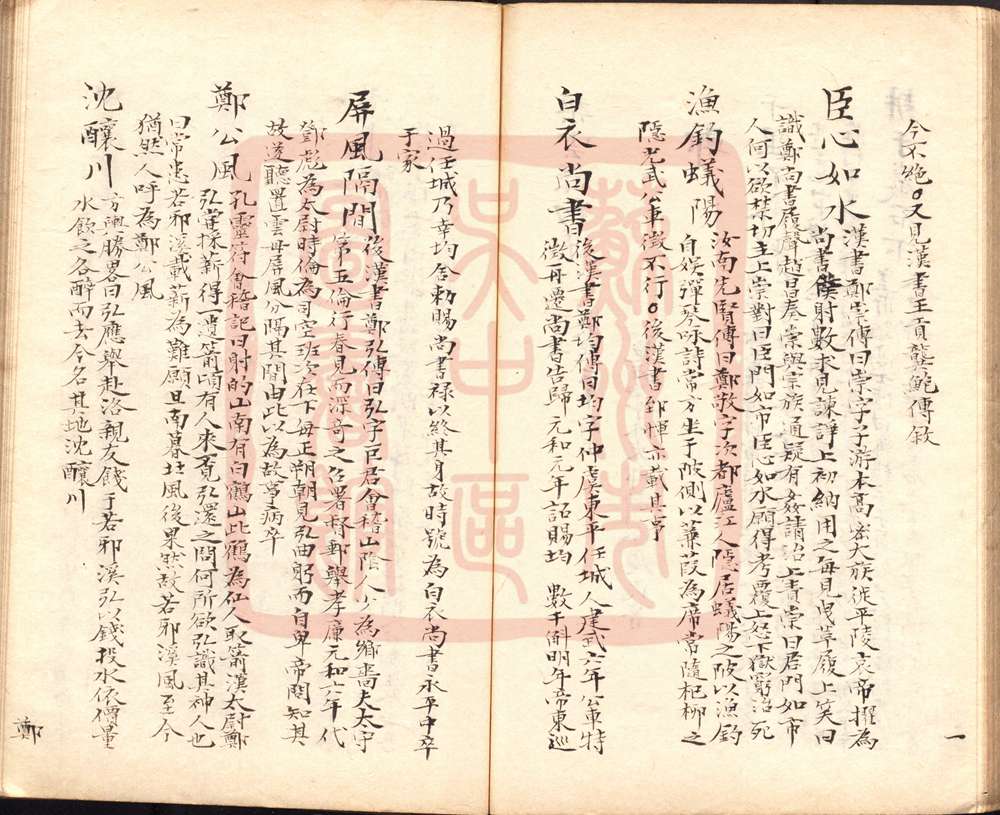 今不絶○又見漢書王貢龔鮑傳敘
臣心如水漢書鄭崇傳曰崇字子游本髙密大族徙平陵哀帝擢為
尚書僕射數求見諫諍上初納用之每見曳革履上笑曰
識鄭尚書履聲趙昌奏崇與宗族通疑有姦請治上責崇曰君門如市
人何以欲禁切主上崇對曰臣門如市臣心如水願得考覆上怒下獄窮治死
漁釣蟻陽汝南先賢傳曰鄭敬字次都廬江人隱居蟻陽之陂以漁釣
自娛彈琴咏詩常方坐于陂側以蒹葭為席常隨杞栁之
隱光武公車徴不行○後漢書郅惲亦載其事
白衣尚書後漢書鄭均傳曰均字仲虞東平任城人建武六年公車特
徴再遷尚書告歸元和元年詔賜均 數千斛明年帝東巡
過任城乃幸均舍勅賜尚書禄以終其身故時號為白衣尚書永平中卒
于家
屏風隔間後漢書鄭弘傳曰弘字巨君會稽山陰人少為鄉嗇夫太守
第五倫行春見而深竒之召署督郵舉孝廉元和六年代
鄧彪為太尉時倫為司空班次在下每正朔朝見弘曲躬而自卑帝問知其
故遂聽置雲母屏風分隔其間由此以為故事病卒
鄭公風孔靈符會稽記曰射的山南有白鶴山此鶴為仙人取箭漢太尉鄭
弘寀採薪得一遺箭頃有人來覓弘還之問何所欲弘識其神人也
曰常患若邪溪載薪為難願旦南暮北風後果然故若邪溪風至今
猶然人呼為鄭公風
沈釀川方輿勝畧曰弘應舉赴洛親友餞于若邪溪弘以錢投水依價量
水飲之各醉而去今名其地沈釀川
一
鄭
蘇州
吳中區
圖書館